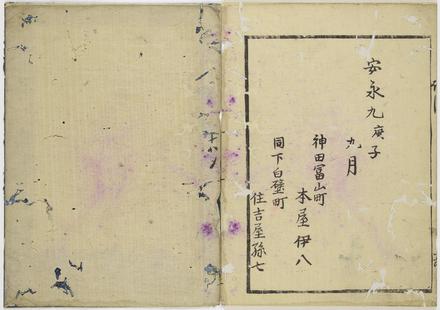 安永九庚子
九月
神田冨山町
本屋伊八
同下白壁町
住吉屋孫七